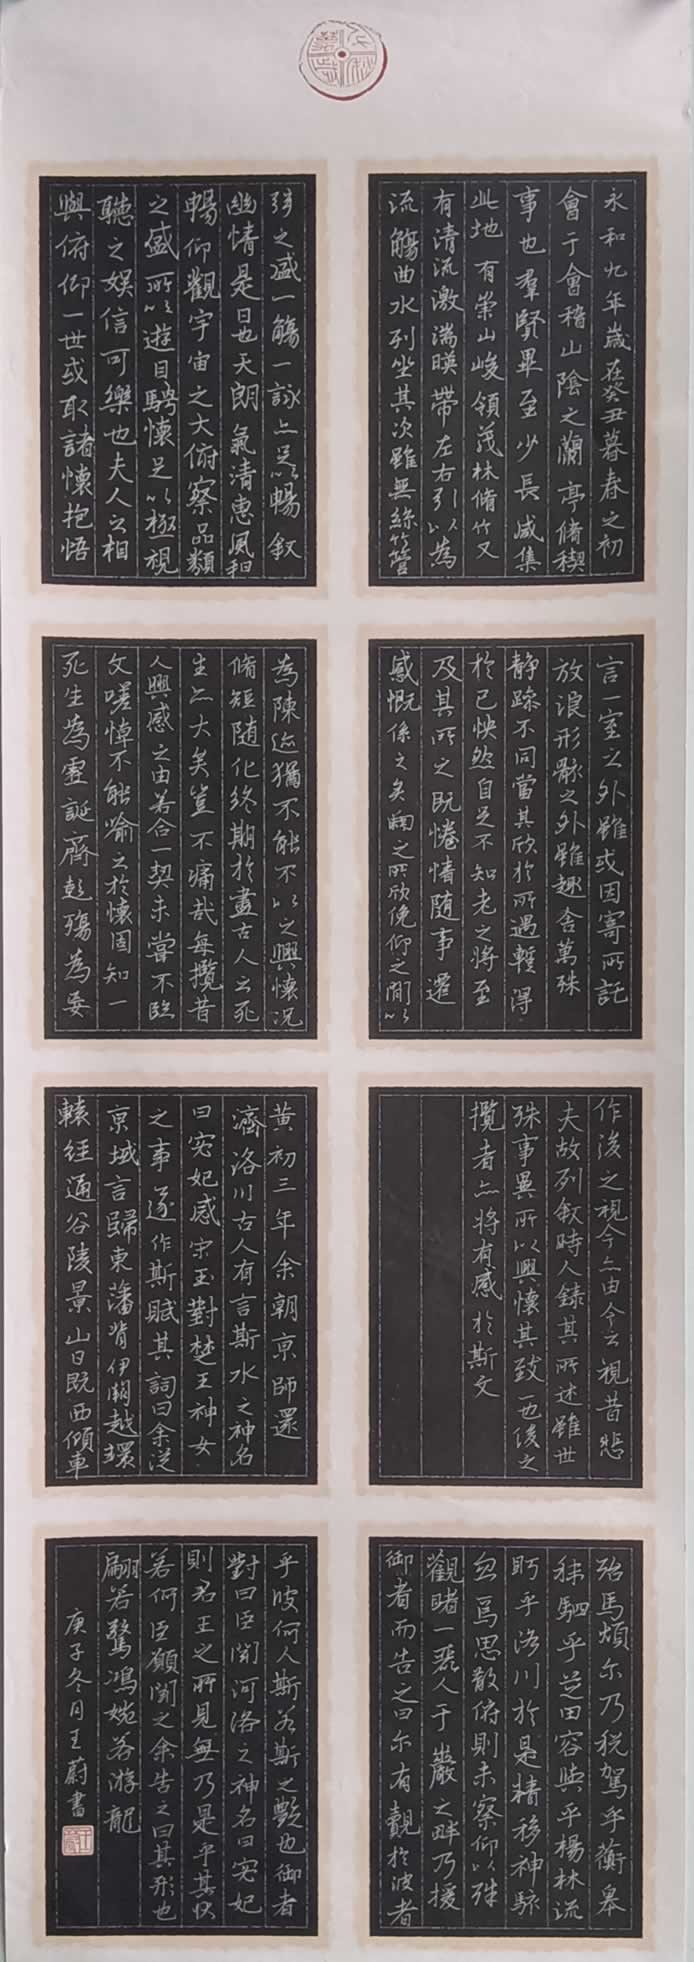 永和九年歲在癸丑暮春之初
會于會稽山陰之蘭亭脩稧
事也羣賢畢至少長咸集
此地有崇山峻領茂林脩竹又
有清流激湍暎帶左右引以為
流觴曲水列坐其次雖無絲竹管
弦之盛一觴一詠亦足以暢叙
幽情是日也天朗氣清惠風和
暢仰觀宇宙之大俯察品類
之盛所以遊目騁懷足以極視
聽之娛信可樂也夫人之相
與俯仰一世或取諸懷抱悟
言一室之外雖或因寄所託
放浪形骸之外雖趣舍萬殊
靜躁不同當其欣於所遇暫得
於己怏然自足不知老之將至
及其所之既惓情隨事遷
感慨係之矣向之所欣俛仰之間以
為陳迹猶不能不以之興懷況
脩短隨化終期於盡古人云死
生亦大矣豈不痛哉每攬昔
人興感之由若合一契未嘗不臨
文嗟悼不能喻之於懷固知一
死生為虛誕齊彭殤為妄
作後之視今亦由今之視昔悲
夫故列叙時人錄其所述雖世
殊事異所以興懷其致一也後之
攬者亦將有感於斯文
黄初三年余朝京師還
濟洛川古人有言斯水之神名
曰宓妃感宋玉對楚王神女
之事遂作斯賦其詞曰余從
京域言歸東藩背伊闕越轘
轅經通谷陵景山日既西傾車
殆馬煩尓乃税駕乎蘅皋
秣駟乎芝田容與乎楊林流
眄乎洛川於是精移神駭
忽焉思散俯則未察仰以殊
觀睹一麗人于巖之畔乃援
御者而告之曰尓有覿於彼者
乎彼何人斯若斯之艷也御者
對曰臣聞河洛之神名曰宓妃
則君王之所見無乃是乎其狀
若何臣願聞之余告之曰其形也
翩若驚鴻婉若游龍
庚子冬月王蔚書